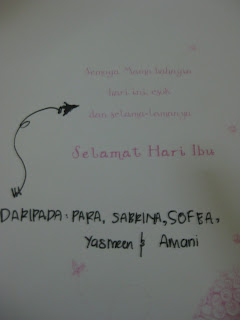 Semoga Mama bahagia
hari ini, esok
dan selama-lamanya
Selamat Hari Ibu
DARIPADA: PARA, SABRINA, SOFEA,
Yasmeen & Amani